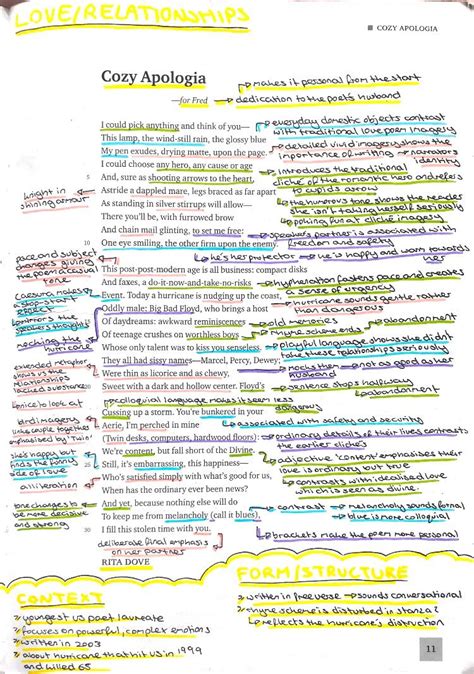 LOVE/RELATIONSHIPS
COZY APOLOGIA
Cozy Apologia
—for Fred
→ makes it personal from the start
→ dedication to the poet's husband
I could pick anything and think of you—
This lamp, the wind-still rain, the glossy blue
My pen exudes, drying matte, upon the page.
I could choose any hero, any cause or age
5 And, sure as shooting arrows to the heart,
Astride a dappled mare, legs braced as far apart
As standing in silver stirrups will allow—
There you'll be, with furrowed brow
And chain mail glinting, to set me free:
10 One eye smiling, the other firm upon the enemy.
→ everyday domestic objects contrast
with traditional love poem imagery
→ detailed vivid imagery shows the
importance of writing in narrators
identity
→ introduces the traditional
cliché of the romantic hero and refers
to cupids arrow
→ the humorous tone shows the reader
she isn't taking herself seriously
→ poking fun at cliché imagery
→ speakers partner is associated with
freedom and safety
→ he's her protector → he is happy and warm towards
her
knight in
shining armour
This post-post-modern age is all business: compact disks
And faxes, a do-it-now-and-take-no-risks
Event. Today a hurricane is nudging up the coast,
Oddly male: Big Bad Floyd, who brings a host
15 Of daydreams: awkward reminiscences
Of teenage crushes on worthless boys
Whose only talent was to kiss you senseless.
They all had sissy names—Marcel, Percy, Dewey;
Were thin as licorice and as chewy,
20 Sweet with a dark and hollow center. Floyd's
pace and subject
changes giving
the poem a casual
tone
caesura makes a
stop-start
effect
mocking the
hurricane
extended metaphor
shows the
relationships
lacked substance
→ hyphenation fastens pace and creates
a sense of urgency
→ hurricane sounds gentle rather
than dangerous
→ old memories
→ abandonment
→ rhyme scheme ends
→ playful language shows she didn't
take these relationships seriously
→ mocks them → not as good as her
husband
→ sentence stops halfway
→ abandonment
→ colloquial language makes it seem less
dangerous
Cussing up a storm. You're bunkered in your
Aerie, I'm perched in mine
(Twin desks, computers, hardwood floors):
We're content, but fall short of the Divine.
25 Still, it's embarrassing, this happiness—
Who's satisfied simply with what's good for us,
When has the ordinary ever been news?
And yet, because nothing else will do
To keep me from melancholy (call it blues),
30 I fill this stolen time with you.
RITA DOVE
nice to look at
bird imagery
links people together
emphasised by 'Twin'
she's happy but
finds the
side of love
alliteration
tone changes to
be more decisive
and strong
→ associated with safety and security
→ ordinary detail of their lives contrasts
the earlier cliche's
→ adjective 'content' emphasises their
love is ordinary but true
→ contrasts with idealised love
which is seen as divine.
→ contrast → melancholy sounds formal
→ blue is more colloquial
→ brackets make the poem more personal
deliberate final emphasis
on her partner
CONTEXT
» youngest us poet laureate
» focuses on powerful, complex emotions
» written in 2003
» about hurricane that hit us in 1999
and killed 65
FORM/STRUCTURE
» written in free verse → sounds conversational
» rhyme scheme is disturbed in stanza 2
↳ reflects the hurricane's distruction
11